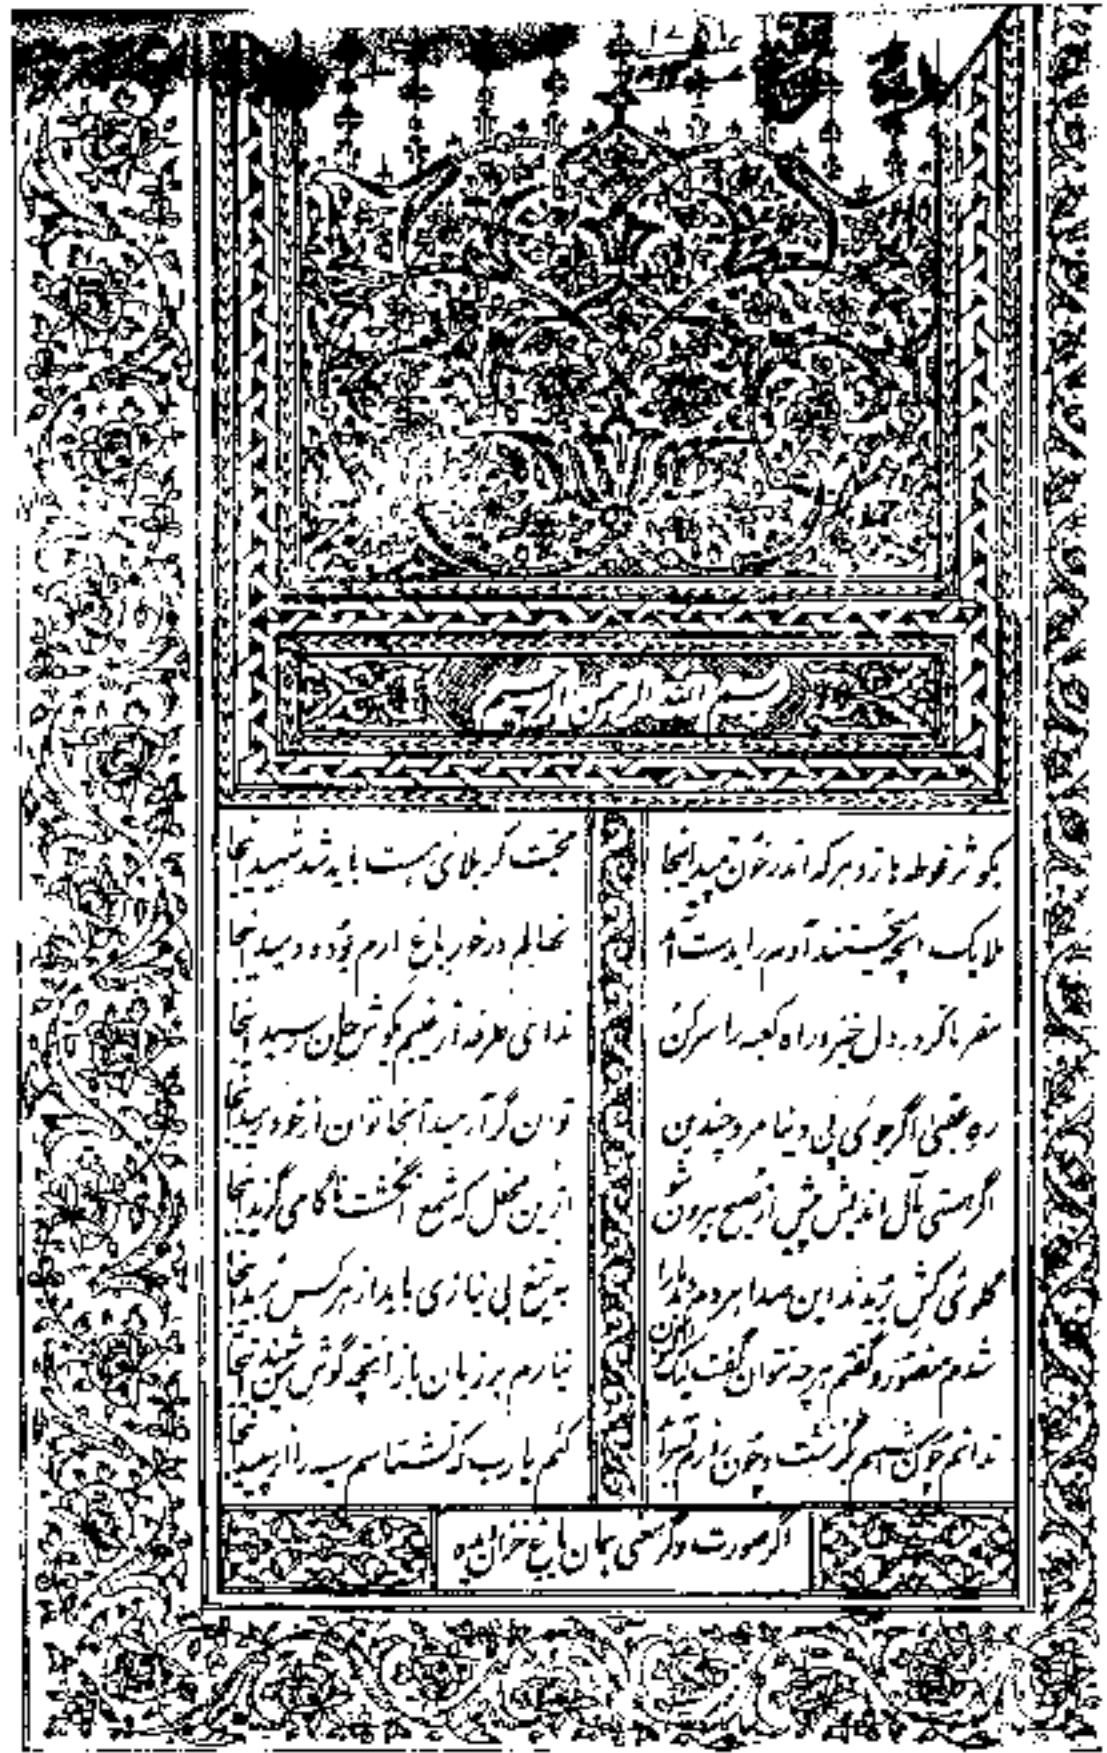 بسم الله الرحمن الرحیم
بکوثر غوطه ها زد هر که اندر خون تپید اینجا
محبت کربلای هست باید شد شهید اینجا
ملایک
نهالم در خور باغ ارم بود و دمید اینجا
سفر تا کرد در دل خیز و راه کعبه را سر کن
ندائی طرفه از غیبم بگوش جان رسید اینجا
ره عقبی اگر جوئی پی دنیا مرو چندین
توان گر آرمید آنجا توان از خود رمید اینجا
اگر هستی مآل اندیش پیش از صبح بیرون شو
ازین محفل که شمع انگشت ناکامی گزید اینجا
گلوئی کش بریدند این صدا میداد یاران را
به تیغ بی نیازی باید از هر کس برید اینجا
شدم منصور و گفتم هر چه نتوان گفت لیکن
نیارم بر زبان باز آنچه گوش من شنید اینجا
ندانم چون کنم
کنم یا رب که نشناسم سیه را از سپید اینجا
اگر صورت و گر معنی همان باغ خزان دیده